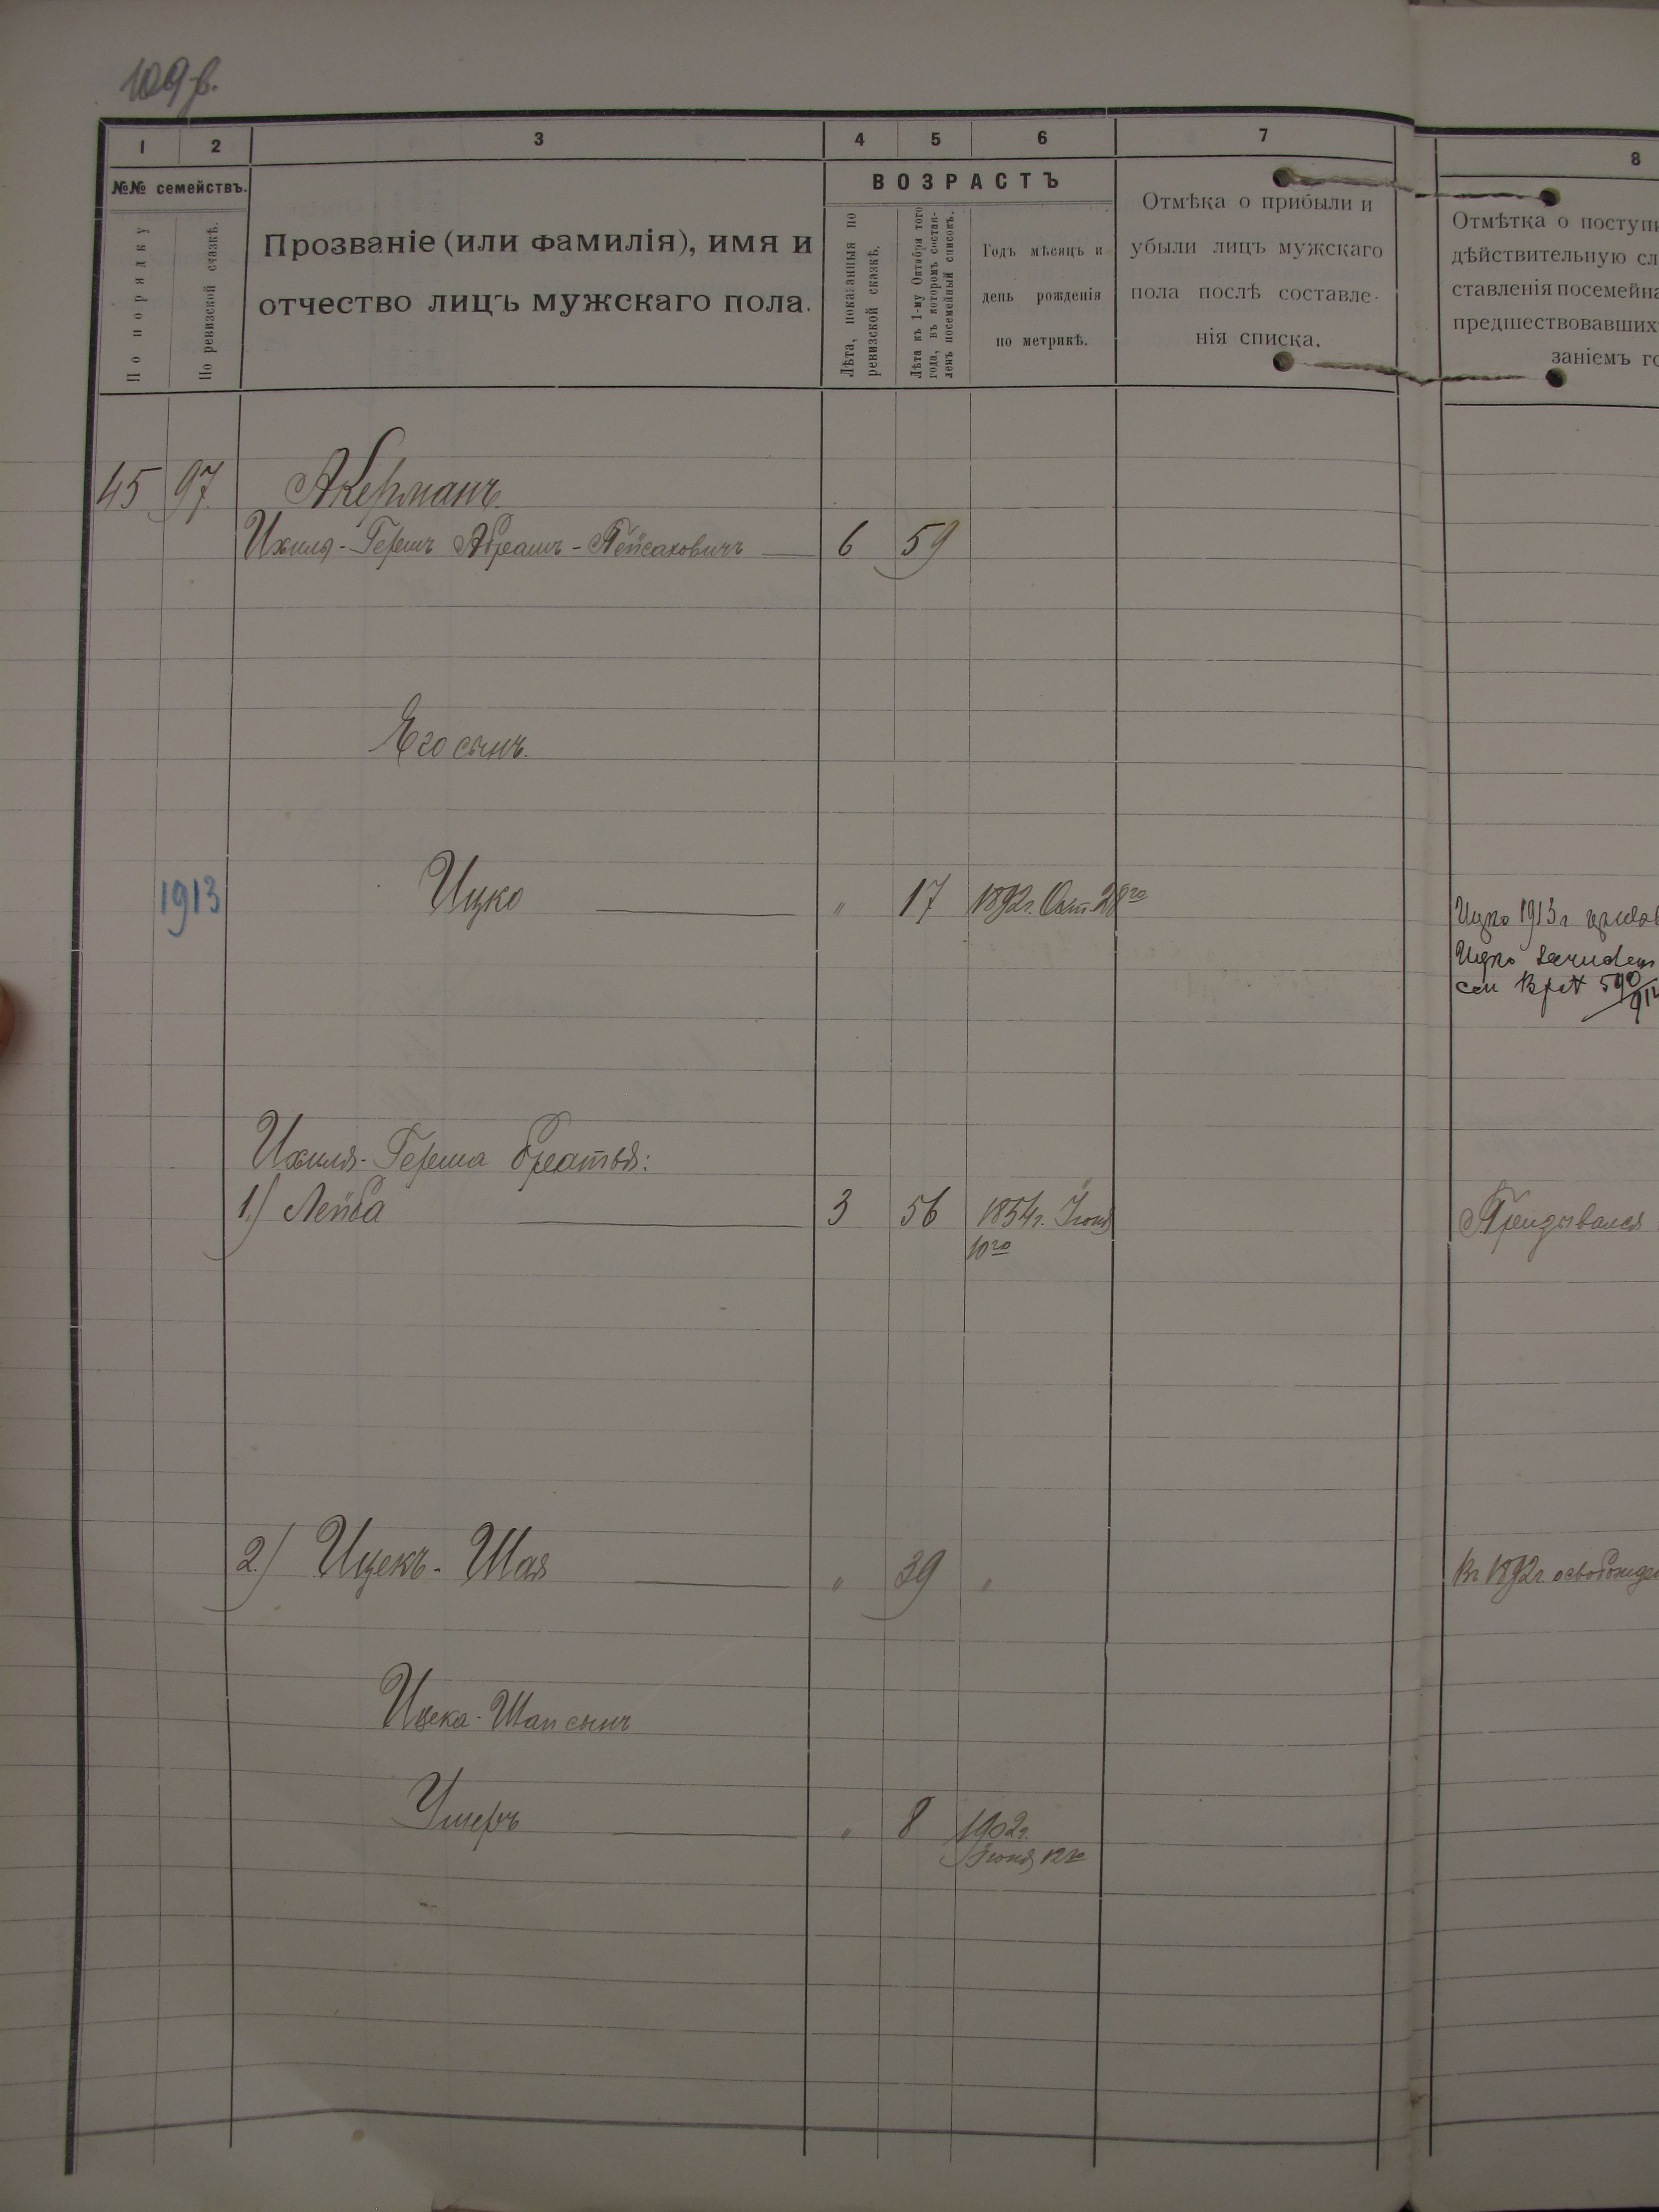 109 в.
1 2 3 4 5 6 7 8
№№ семействъ.
По порядку
По ревизской сказкѣ.
Прозваніе (или фамилія), имя и
отчество лицъ мужскаго пола.
ВОЗРАСТЪ
Лѣта, показанныя по
ревизской сказкѣ.
Лѣта къ 1-му Октября того
года, въ которомъ состав-
ленъ посемейный списокъ.
Годъ мѣсяцъ и
день рожденія
по метрикѣ.
Отмѣка о прибыли и
убыли лицъ мужскаго
пола послѣ составле-
нія списка.
Отмѣтка о поступи
дѣйствительную сл
ставленія посемейна
предшествовавших
заніемъ го
45 97 Акерманъ.
Ихиля-Гершъ Абрамъ-Пейсаховичъ 6 59
Его сынъ.
1913 Ицко " 17 1892 г. Окт. 28го
Ицко 1913 г призв
Ицко
590
Ихиля-Герша братья:
1) Лейба 3 56 1854 г. Іюня
10го
Призывался
2.) Ицекъ-Шая " 39 "
Въ 1892 г. освобожде
Ицека-Шаи сынъ
Ушеръ " 8 1902 г.
Іюня 12го